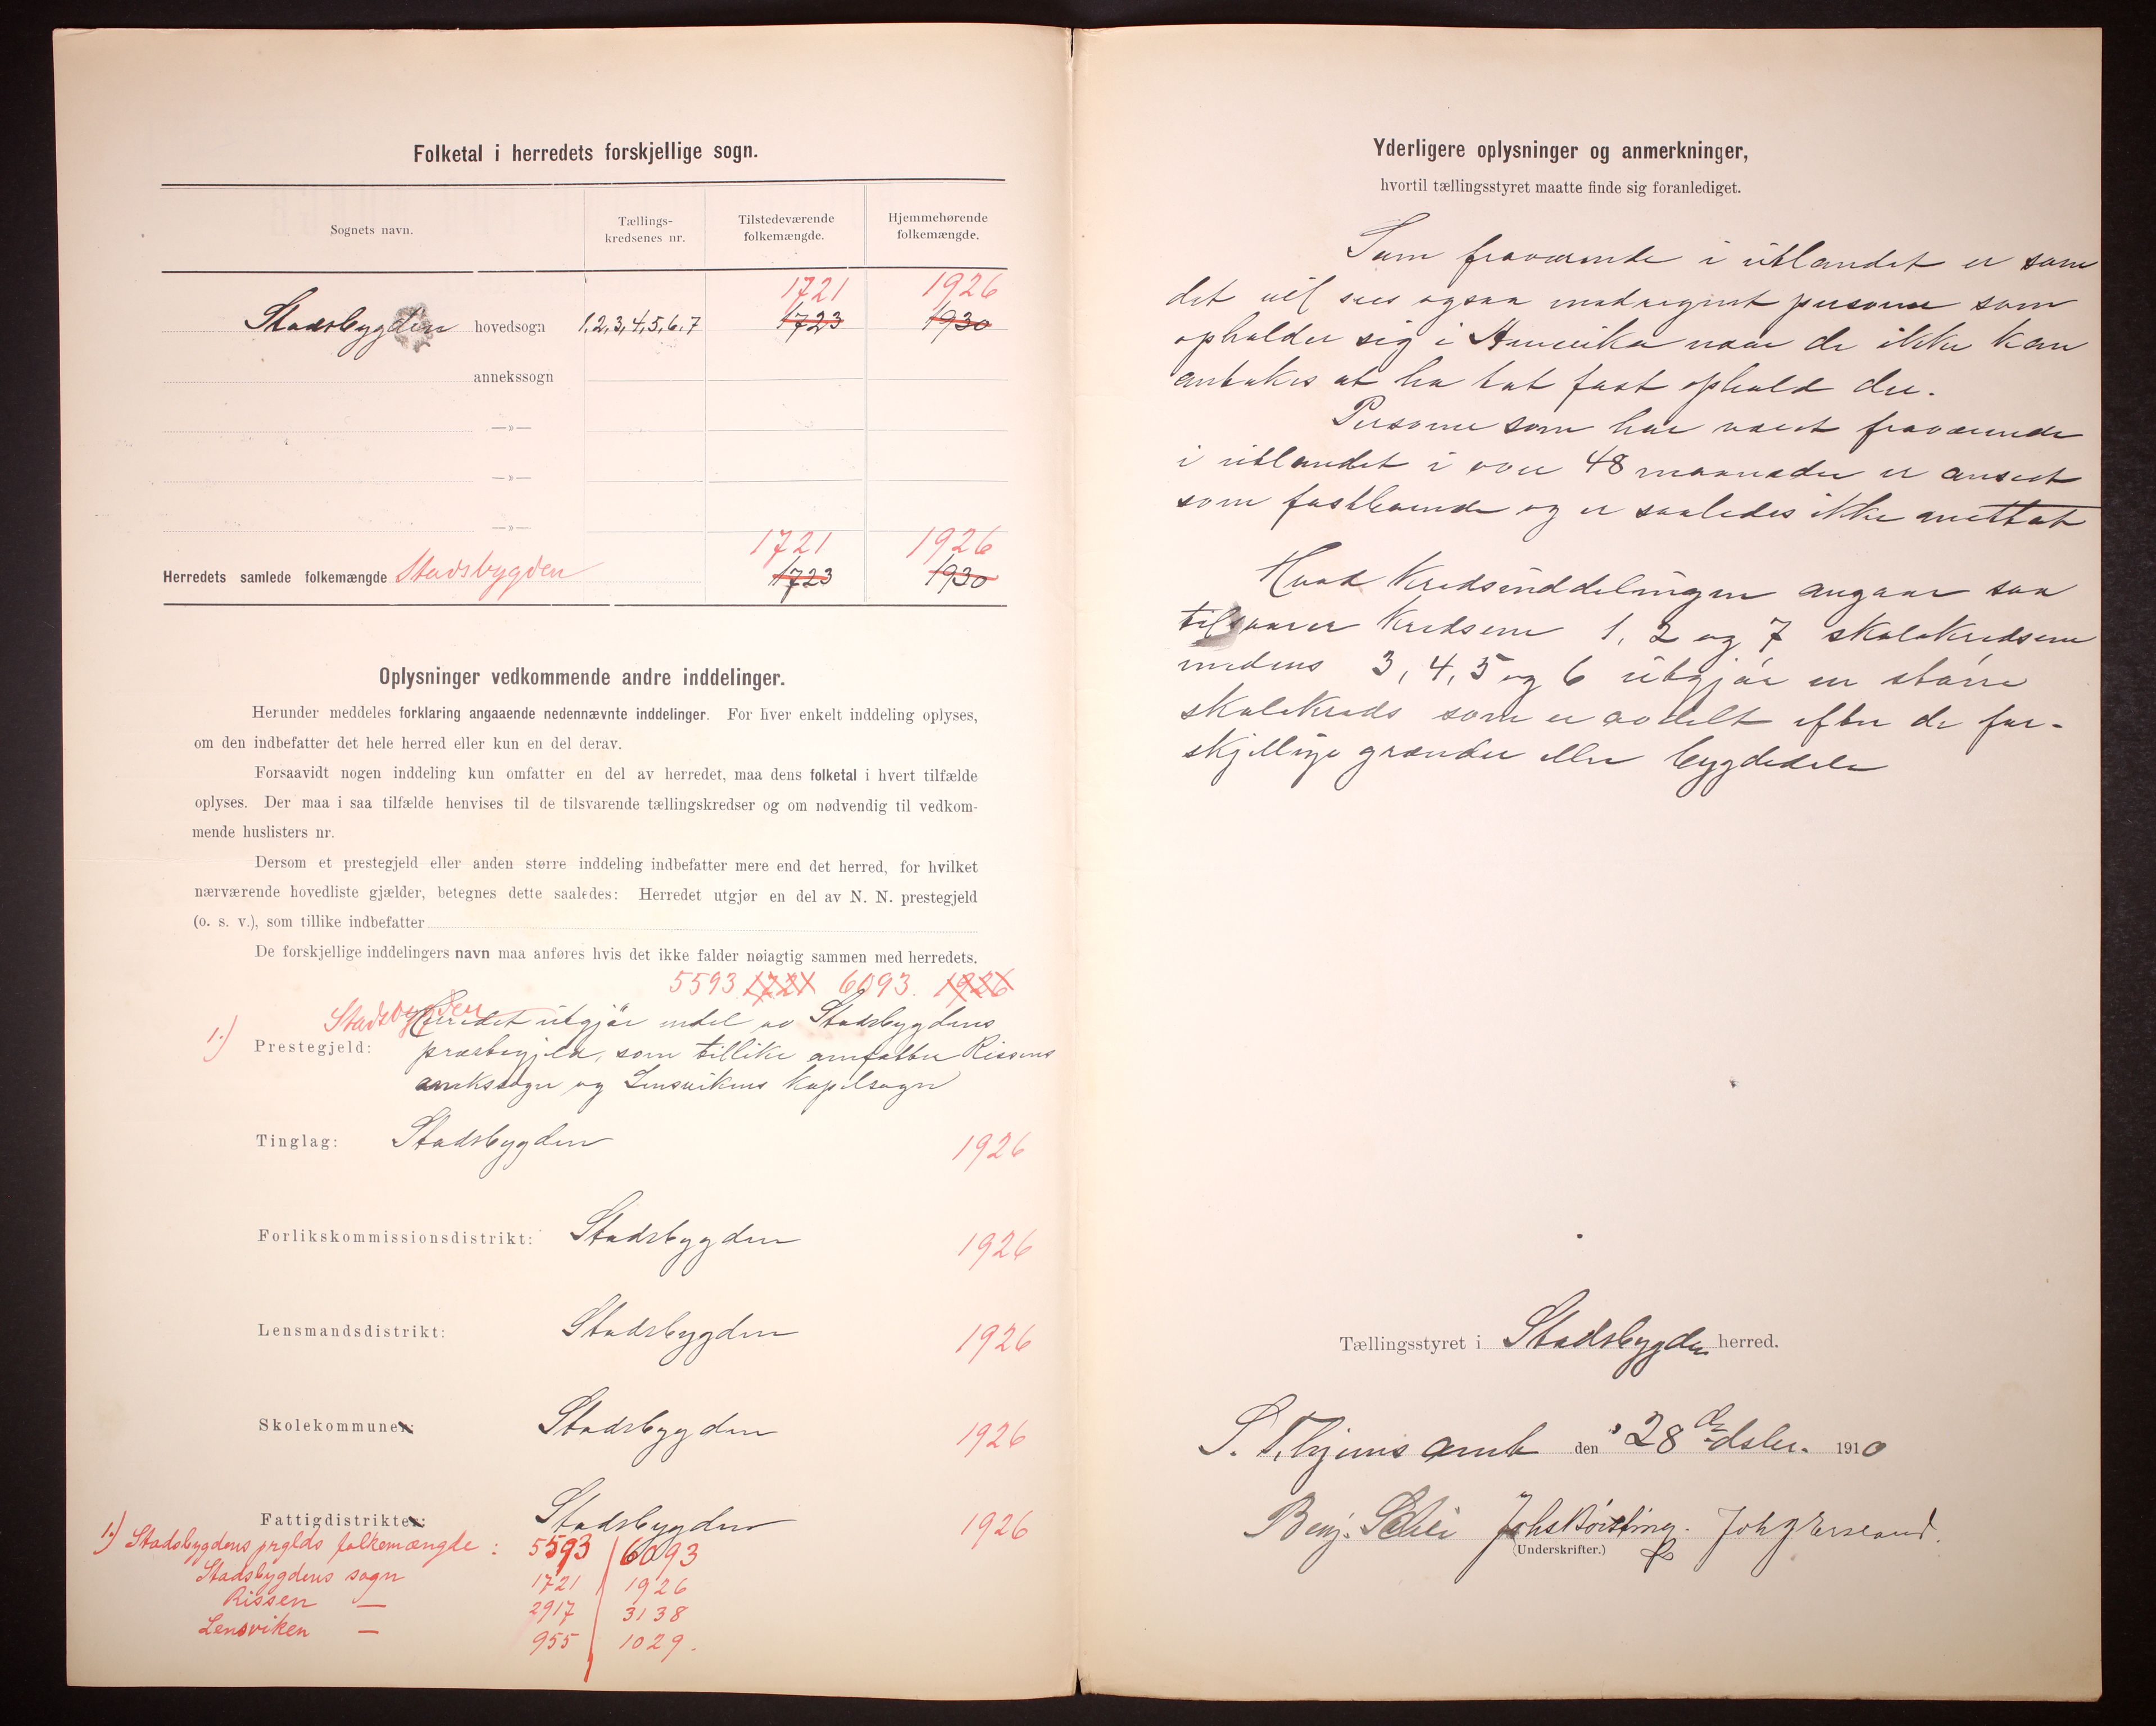 Folketal i herredets forskjellige sogn.
Sognets navn.
Tællings-
kredsenes nr.
Tilstedeværende
folkemængde.
Hjemmehørende
folkemængde.
1721 1926
Stadsbygden hovedsogn 1,2,3,4,5,6,7 1723 1930
annekssogn
—»—
—»—
—»—
1721 1926
Herredets samlede folkemængde Stadsbygden 1723 1930
Oplysninger vedkommende andre inddelinger.
Herunder meddeles forklaring angaaende nedennævnte inddelinger. For hver enkelt inddeling oplyses,
om den indbefatter det hele herred eller kun en del derav.
Forsaavidt nogen inddeling kun omfatter en del av herredet, maa dens folketal i hvert tilfælde
oplyses. Der maa i saa tilfælde henvises til de tilsvarende tællingskredser og om nødvendig til vedkom-
mende huslisters nr.
Dersom et prestegjeld eller anden større inddeling indbefatter mere end det herred, for hvilket
nærværende hovedliste gjælder, betegnes dette saaledes: Herredet utgjør en del av N. N. prestegjeld
(o. s. v.), som tillike indbefatter
De forskjellige inddelingers navn maa anføres hvis det ikke falder nøiagtig sammen med herredets.
5593 1721 6093. 1926
Stadsbygden
Herredet utgjör endel av Stadsbygdens
1.) Prestegjeld: præstegjeld, som tillike omfatter Rissens
anekssogn og Lensvikens kapelsogn
Tinglag: Stadsbygden 1926
Forlikskommissionsdistrikt: Stadsbygden 1926
Lensmandsdistrikt: Stadsbygden 1926
Skolekommuner: Stadsbygden 1926
Fattigdistrikter: Stadsbygden 1926
1.) Stadsbygdens prglds folkemængde : 5593 6093
Stadsbygdens sogn 1721 1926
Rissen — 2917 3138
Lensviken — 955 1029.
Yderligere oplysninger og anmerkninger,
hvortil tællingsstyret maatte finde sig foranlediget.
Som fraværende i utlandet er som
det vil sees ogsaa medregnet personer som
opholder sig i Amerika naar de ikke kan
antakes at ha tat fast ophold der.
Personer som har været fraværende
i utlandet i over 48 maaneder er anseet
som fastboende og er saaledes ikke mettat
Hvad Kredsinddelingen angaar saa
tilsvarer Kredsene 1, 2 og 7 skolekredsene
medens 3, 4, 5 og 6 utgjör en större
skolekreds som er avdelt efter de for-
skjellige grænder eller bygdedele
Tællingsstyret i Stadsbygden herred.
S. Thjems amt den 28 de dsbr. 1910
Benj. Schei Johs
(Underskrifter.)